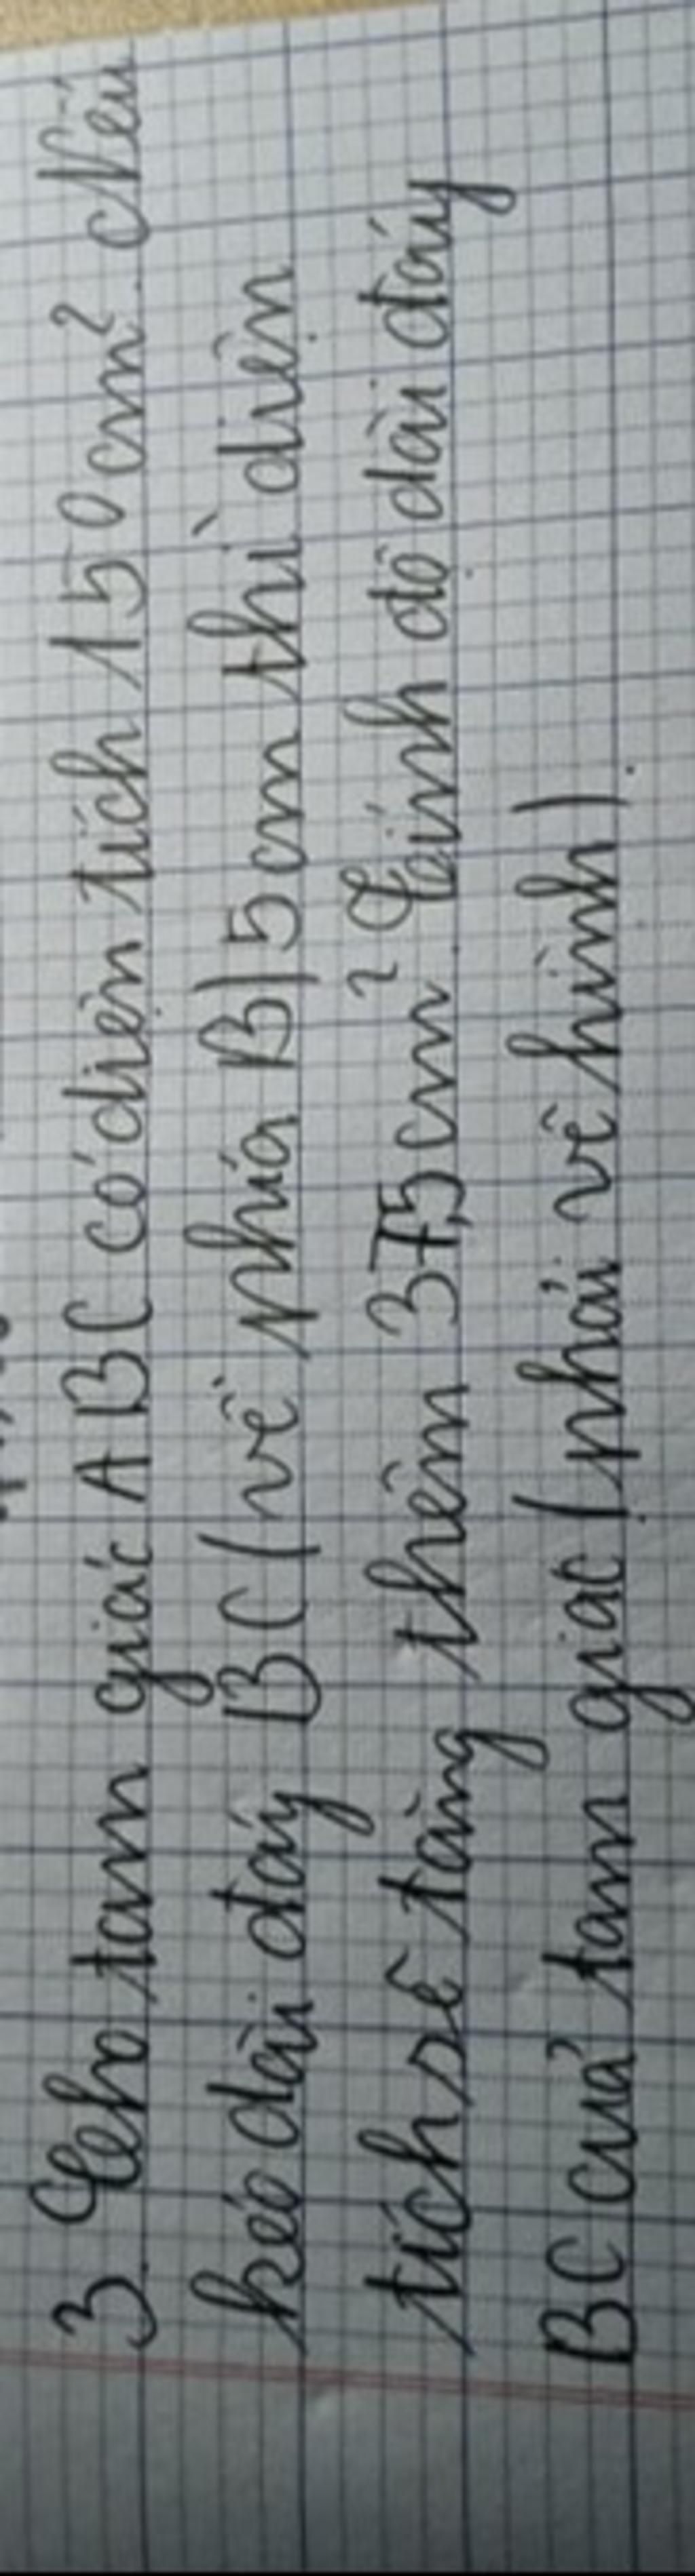 3. Cho tam giác ABC có diện tích 150cm². Nếu
kéo dài đáy BC (về phía B) 5cm thì diện
tích sẽ tăng thêm 37,5cm². Tính độ dài đáy
BC của tam giác (phải vẽ hình).